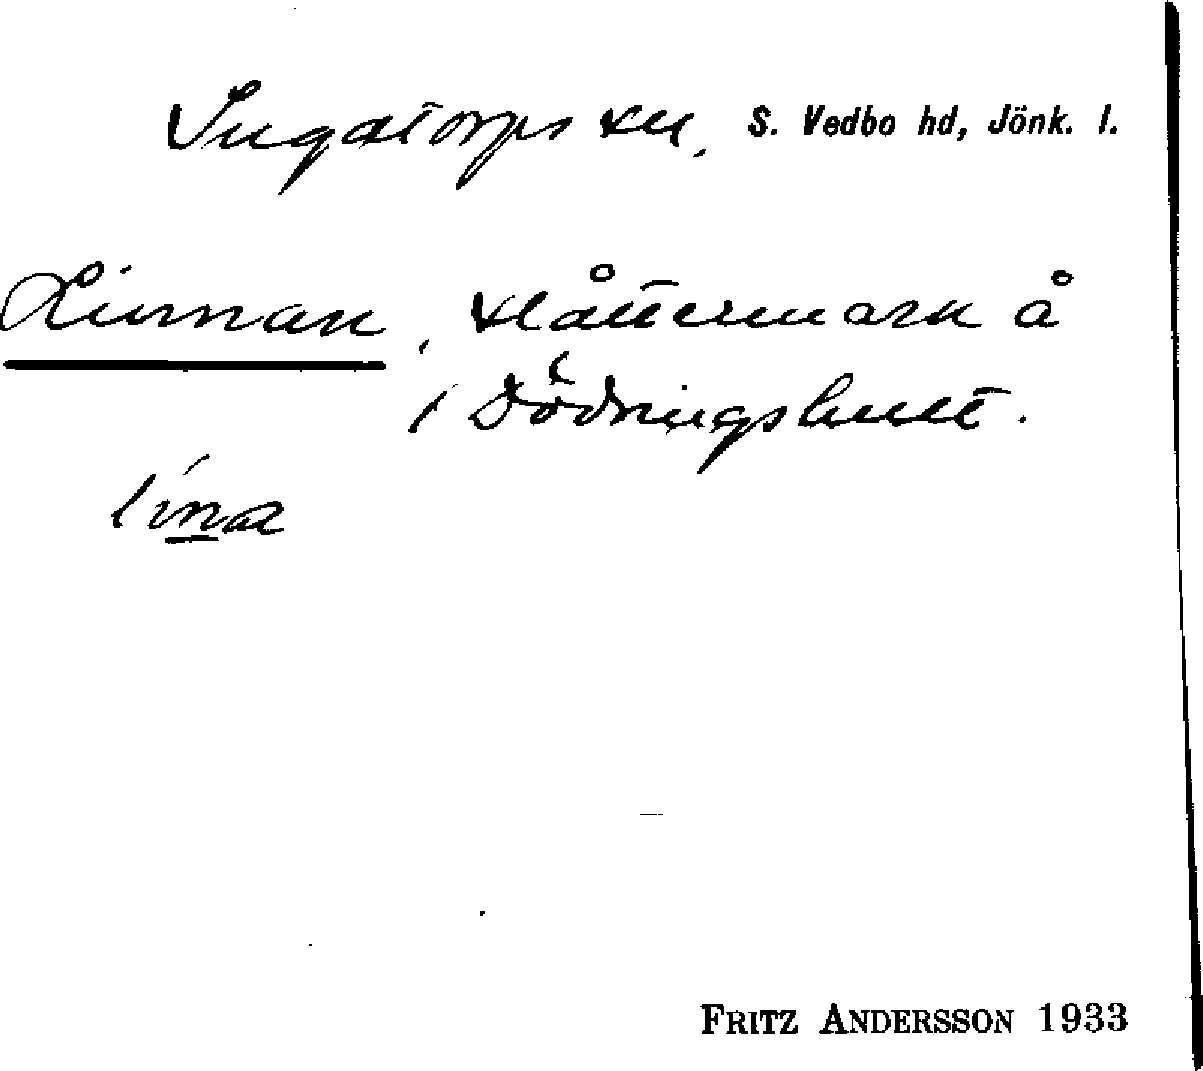 Ingatorps sn. S. Vedbo hd, Jönk. l.
Linnan, slåttermark å
i Dödringshult.
lina
FRITZ ANDERSSON 1933